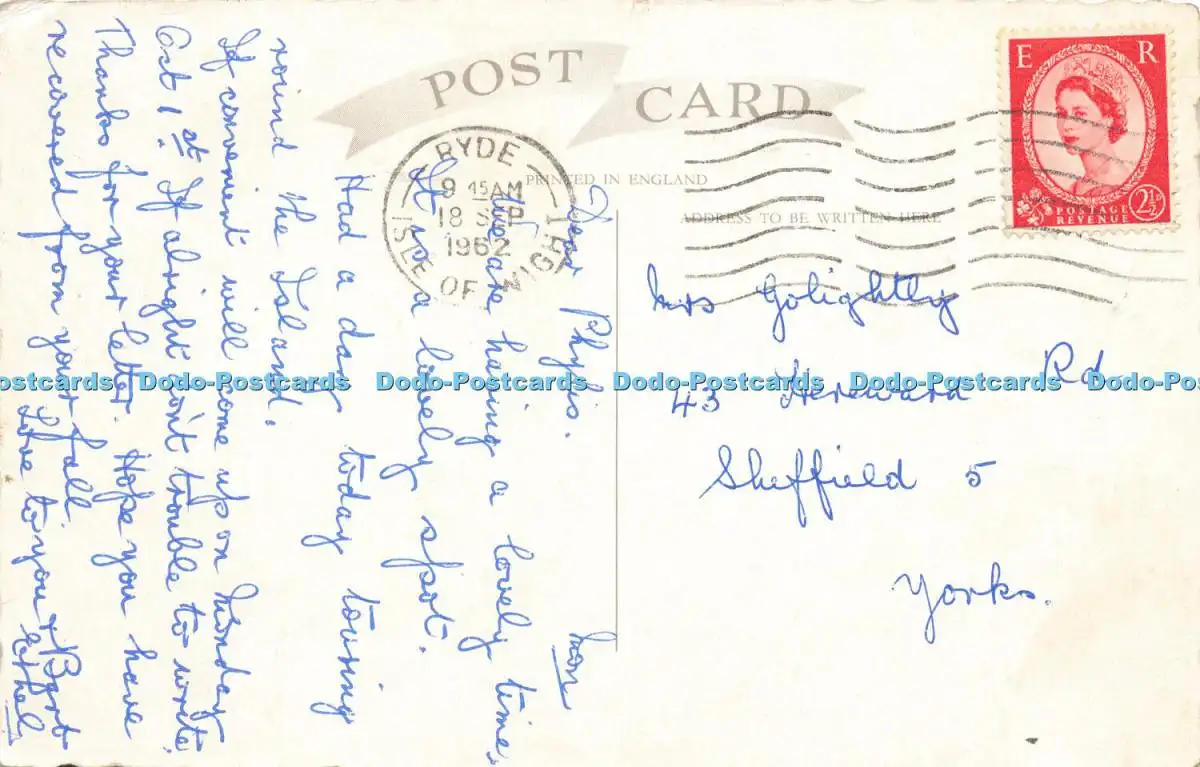 POST CARD
PRINTED IN ENGLAND
ADDRESS TO BE WRITTEN HERE
E R
POSTAGE REVENUE 2½D
RYDE
9 45AM
18 SEP
1962
ISLE OF WIGHT
Mon
Dear Phylis.
We are having a lovely time,
It is a lovely spot.
Had a day today touring
round the Island.
If convenient will come up on Monday
Oct 1st. If alright don't trouble to write.
Thanks for your letter. Hope you have
recovered from your fall.
Love to you & Bert
Ethel
Mrs Golightly
43 Hereward Rd
Sheffield 5
Yorks.
Dodo-Postcards Dodo-Postcards Dodo-Postcards Dodo-Postcards Dodo-Postcards